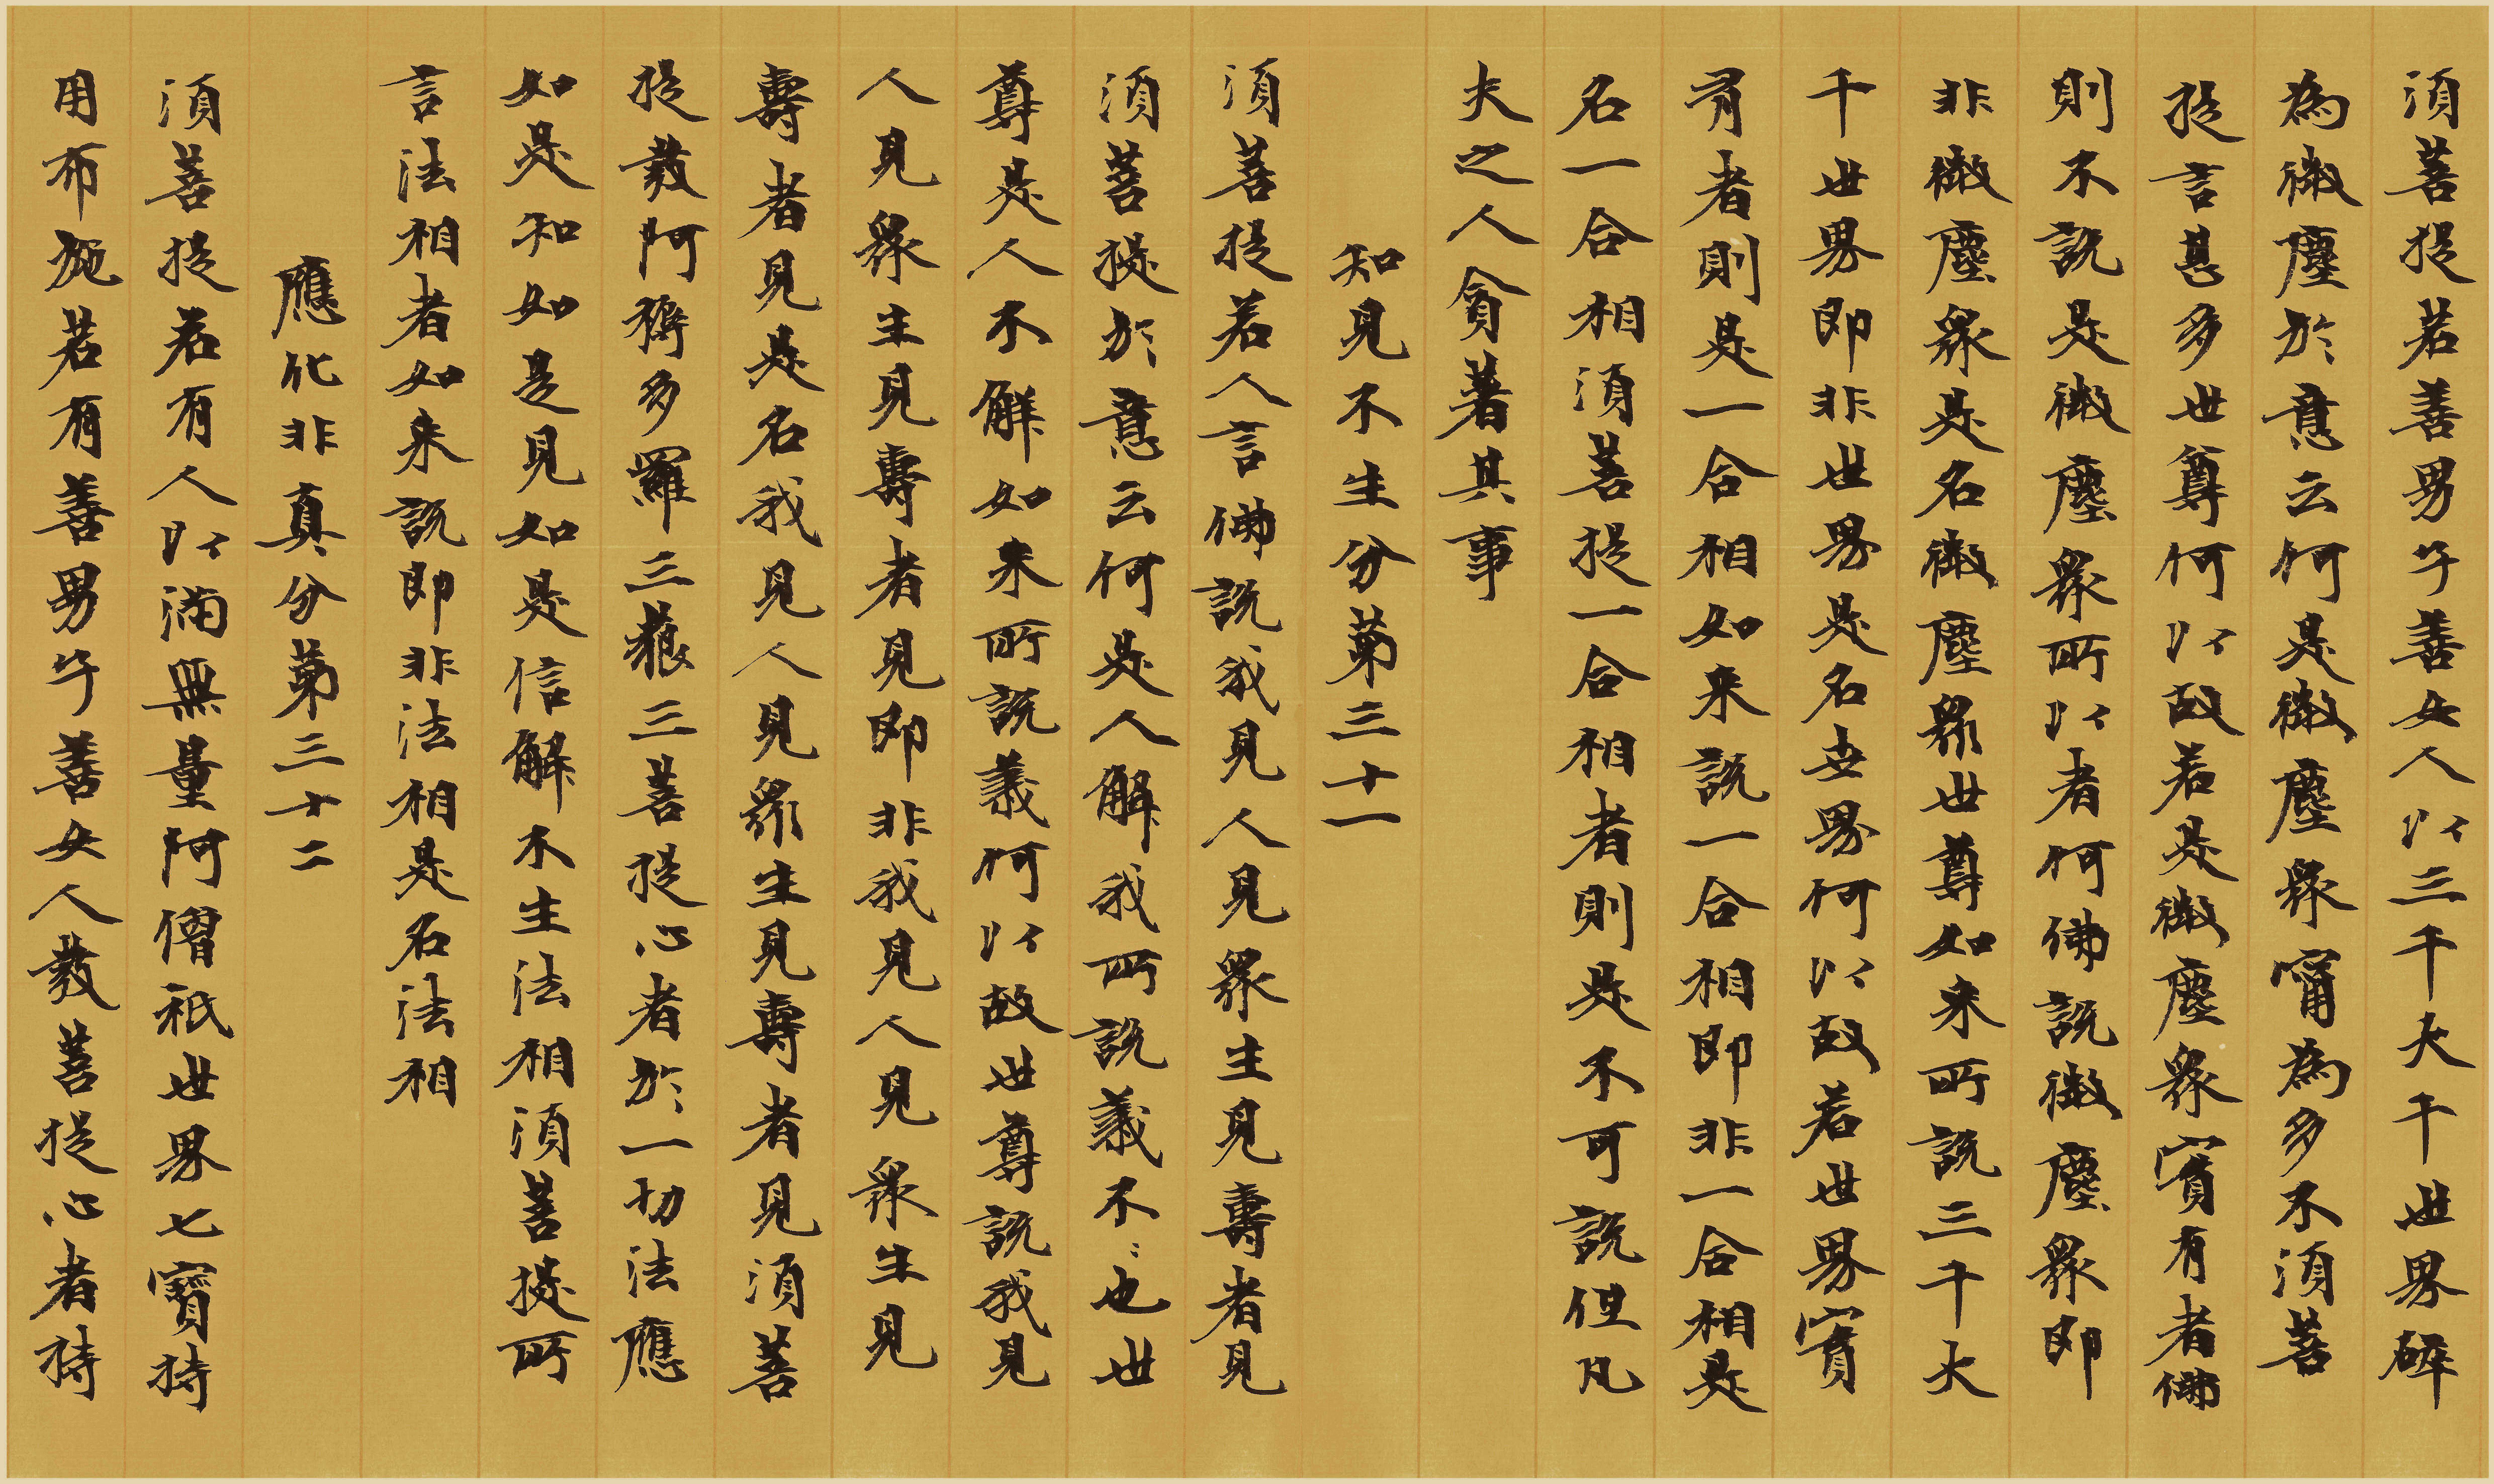 須菩提若善男子善女人以三千大千世界碎
為微塵於意云何是微塵眾甯為多不須菩
提言甚多世尊何以故若是微塵眾實有者佛
則不說是微塵眾所以者何佛說微塵眾即
非微塵眾是名微塵眾世尊如来所說三千大
千世界即非世界是名世界何以故若世界實
有者則是一合相如来說一合相即非一合相是
名一合相須菩提一合相者則是不可說但凡
夫之人貪著其事
知見不生分第三十一
須菩提若人言佛說我見人見眾生見壽者見
須菩提於意云何是人解我所說義不不也世
尊是人不解如来所說義何以故世尊說我見
人見眾生見壽者見即非我見人見眾生見
壽者見是名我見人見眾生見壽者見須菩
提發阿耨多羅三藐三菩提心者於一切法應
如是知如是見如是信解不生法相須菩提所
言法相者如来說即非法相是名法相
應化非真分第三十二
須菩提若有人以滿無量阿僧祇世界七寶持
用布施若有善男子善女人發菩提心者持